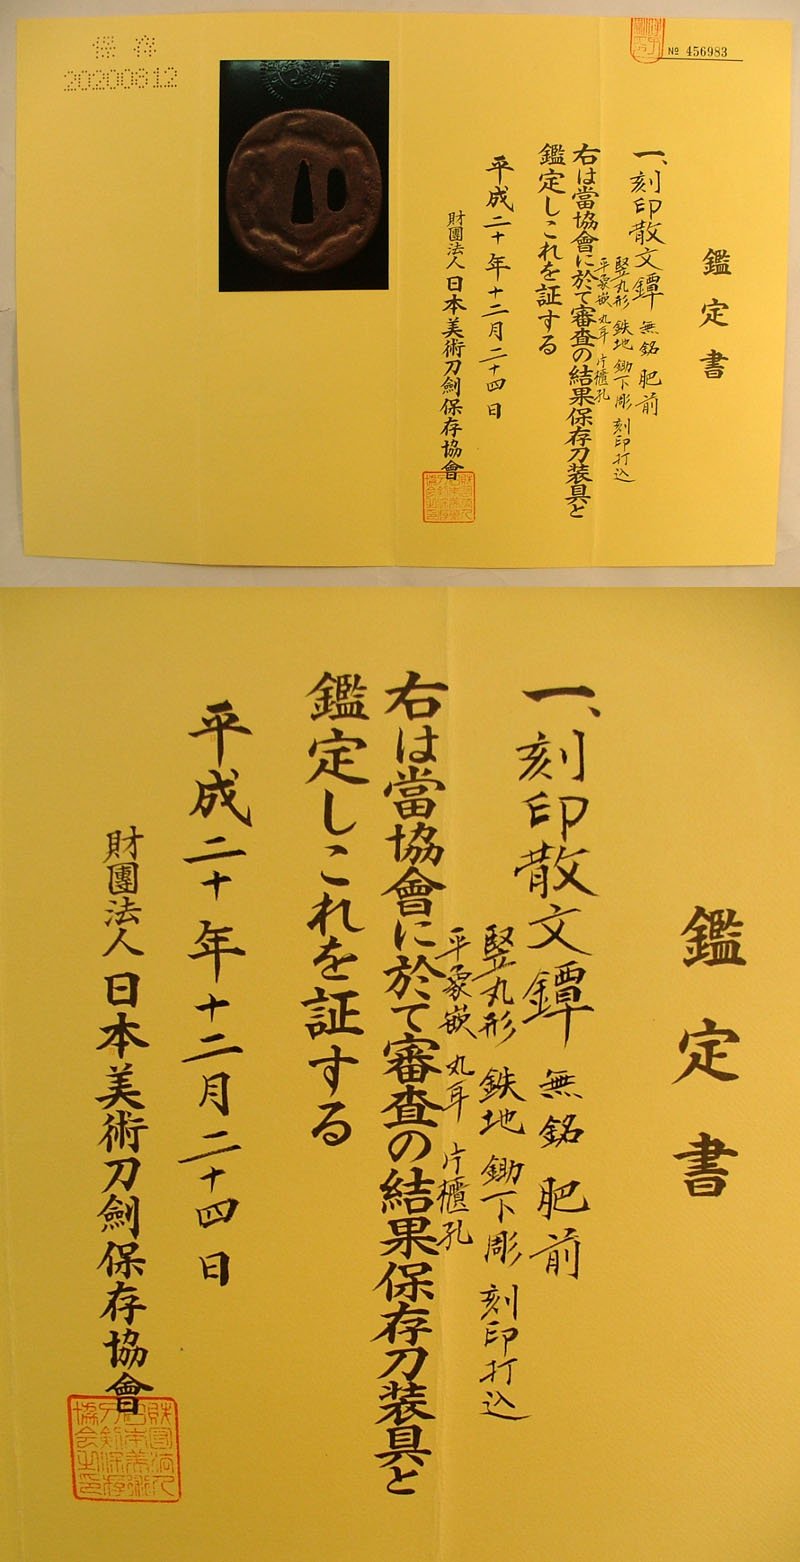 保存
20200812
№ 456983
鑑定書
一、刻印散文鐔 無銘 肥前
竪丸形 鉄地 鋤下彫 刻印打込
平象嵌 丸耳 片櫃孔
右は當協會に於て審査の結果保存刀装具と
鑑定しこれを証する
平成二十年十二月二十四日
財團法人日本美術刀劍保存協會
鑑定書
一、刻印散文鐔 無銘 肥前
竪丸形 鉄地 鋤下彫 刻印打込
平象嵌 丸耳 片櫃孔
右は當協會に於て審査の結果保存刀装具と
鑑定しこれを証する
平成二十年十二月二十四日
財團法人日本美術刀劍保存協會